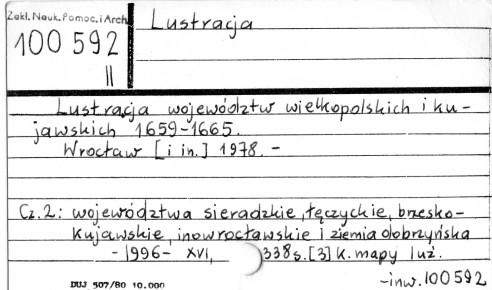 Zakł. Nauk. Pomoc. i Arch
100 592
II
Lustracja
Lustracja województw wielkopolskich i ku-
jawskich 1659-1665.
Wrocław [i in.] 1978. -
Cz. 2: województwa sieradzkie, łęczyckie, brzesko-
kujawskie, inowrocławskie i ziemia dobrzyńska
- 1996 - XVI, 338 s. [3] k. mapy luź.
- inw. 100 592
DUJ 507/80 10.000